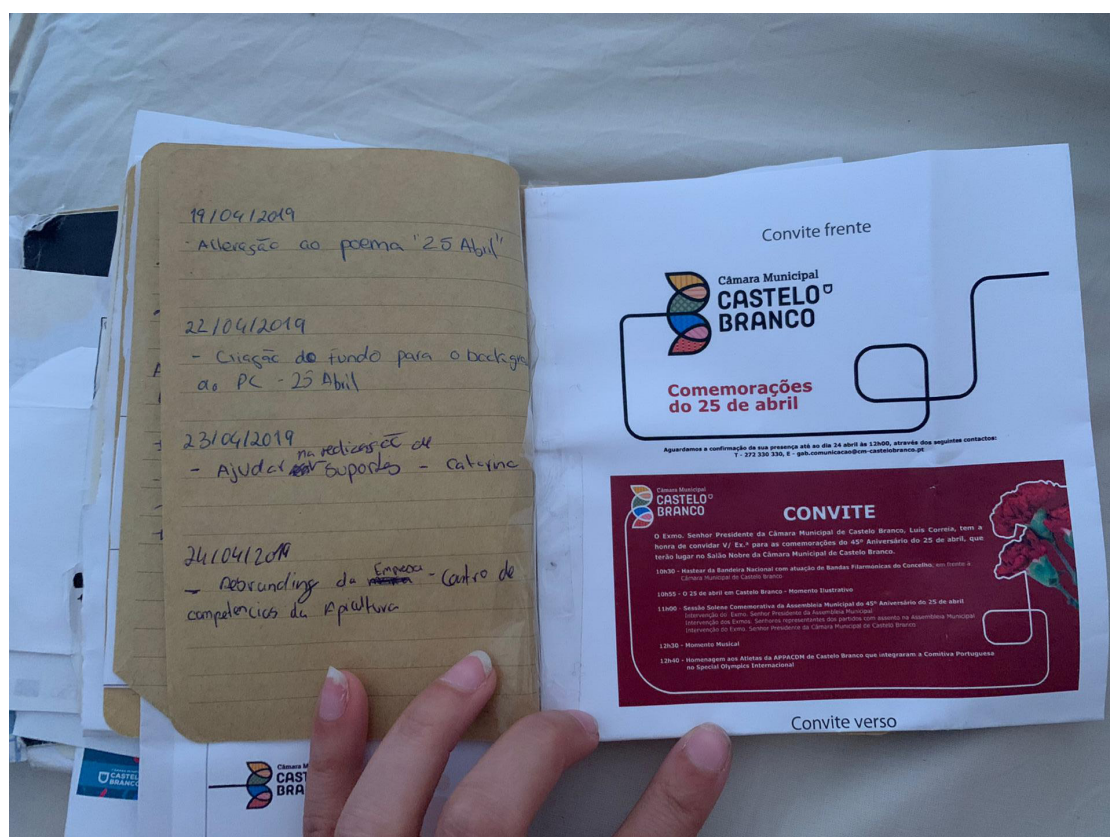 19/04/2019
- Alteração ao poema "25 Abril"
22/04/2019
- Criação do fundo para o backgro
ao PC - 25 Abril
23/04/2019
na realização de
- Ajudar suportes - Catarina
24/04/2019
Empresa
- Rebranding da - Centro de
competencias da Apicultura
Convite frente
Câmara Municipal
CASTELO
BRANCO
Comemorações
do 25 de abril
Aguardamos a confirmação da sua presença até ao dia 24 abril às 12h00, através dos seguintes contactos:
T - 272 330 330, E - gab.comunicacao@cm-castelobranco.pt
Câmara Municipal
CASTELO
BRANCO
CONVITE
O Exmo. Senhor Presidente da Câmara Municipal de Castelo Branco, Luís Correia, tem a
honra de convidar V/ Ex.ª para as comemorações do 45º Aniversário do 25 de abril, que
terão lugar no Salão Nobre da Câmara Municipal de Castelo Branco.
10h30 - Hastear da Bandeira Nacional com atuação de Bandas Filarmónicas do Concelho, em frente à
Câmara Municipal de Castelo Branco
10h55 - O 25 de abril em Castelo Branco - Momento Ilustrativo
11h00 - Sessão Solene Comemorativa da Assembleia Municipal do 45º Aniversário do 25 de abril
Intervenção do Exmo. Senhor Presidente da Assembleia Municipal
Intervenção dos Exmos. Senhores representantes dos partidos com assento na Assembleia Municipal
Intervenção do Exmo. Senhor Presidente da Câmara Municipal de Castelo Branco
12h30 - Momento Musical
12h40 - Homenagem aos Atletas da APPACDM de Castelo Branco que integraram a Comitiva Portuguesa
no Special Olympics Internacional
Convite verso
CASTEL
BRANC
Câmara M
CAST
BRA